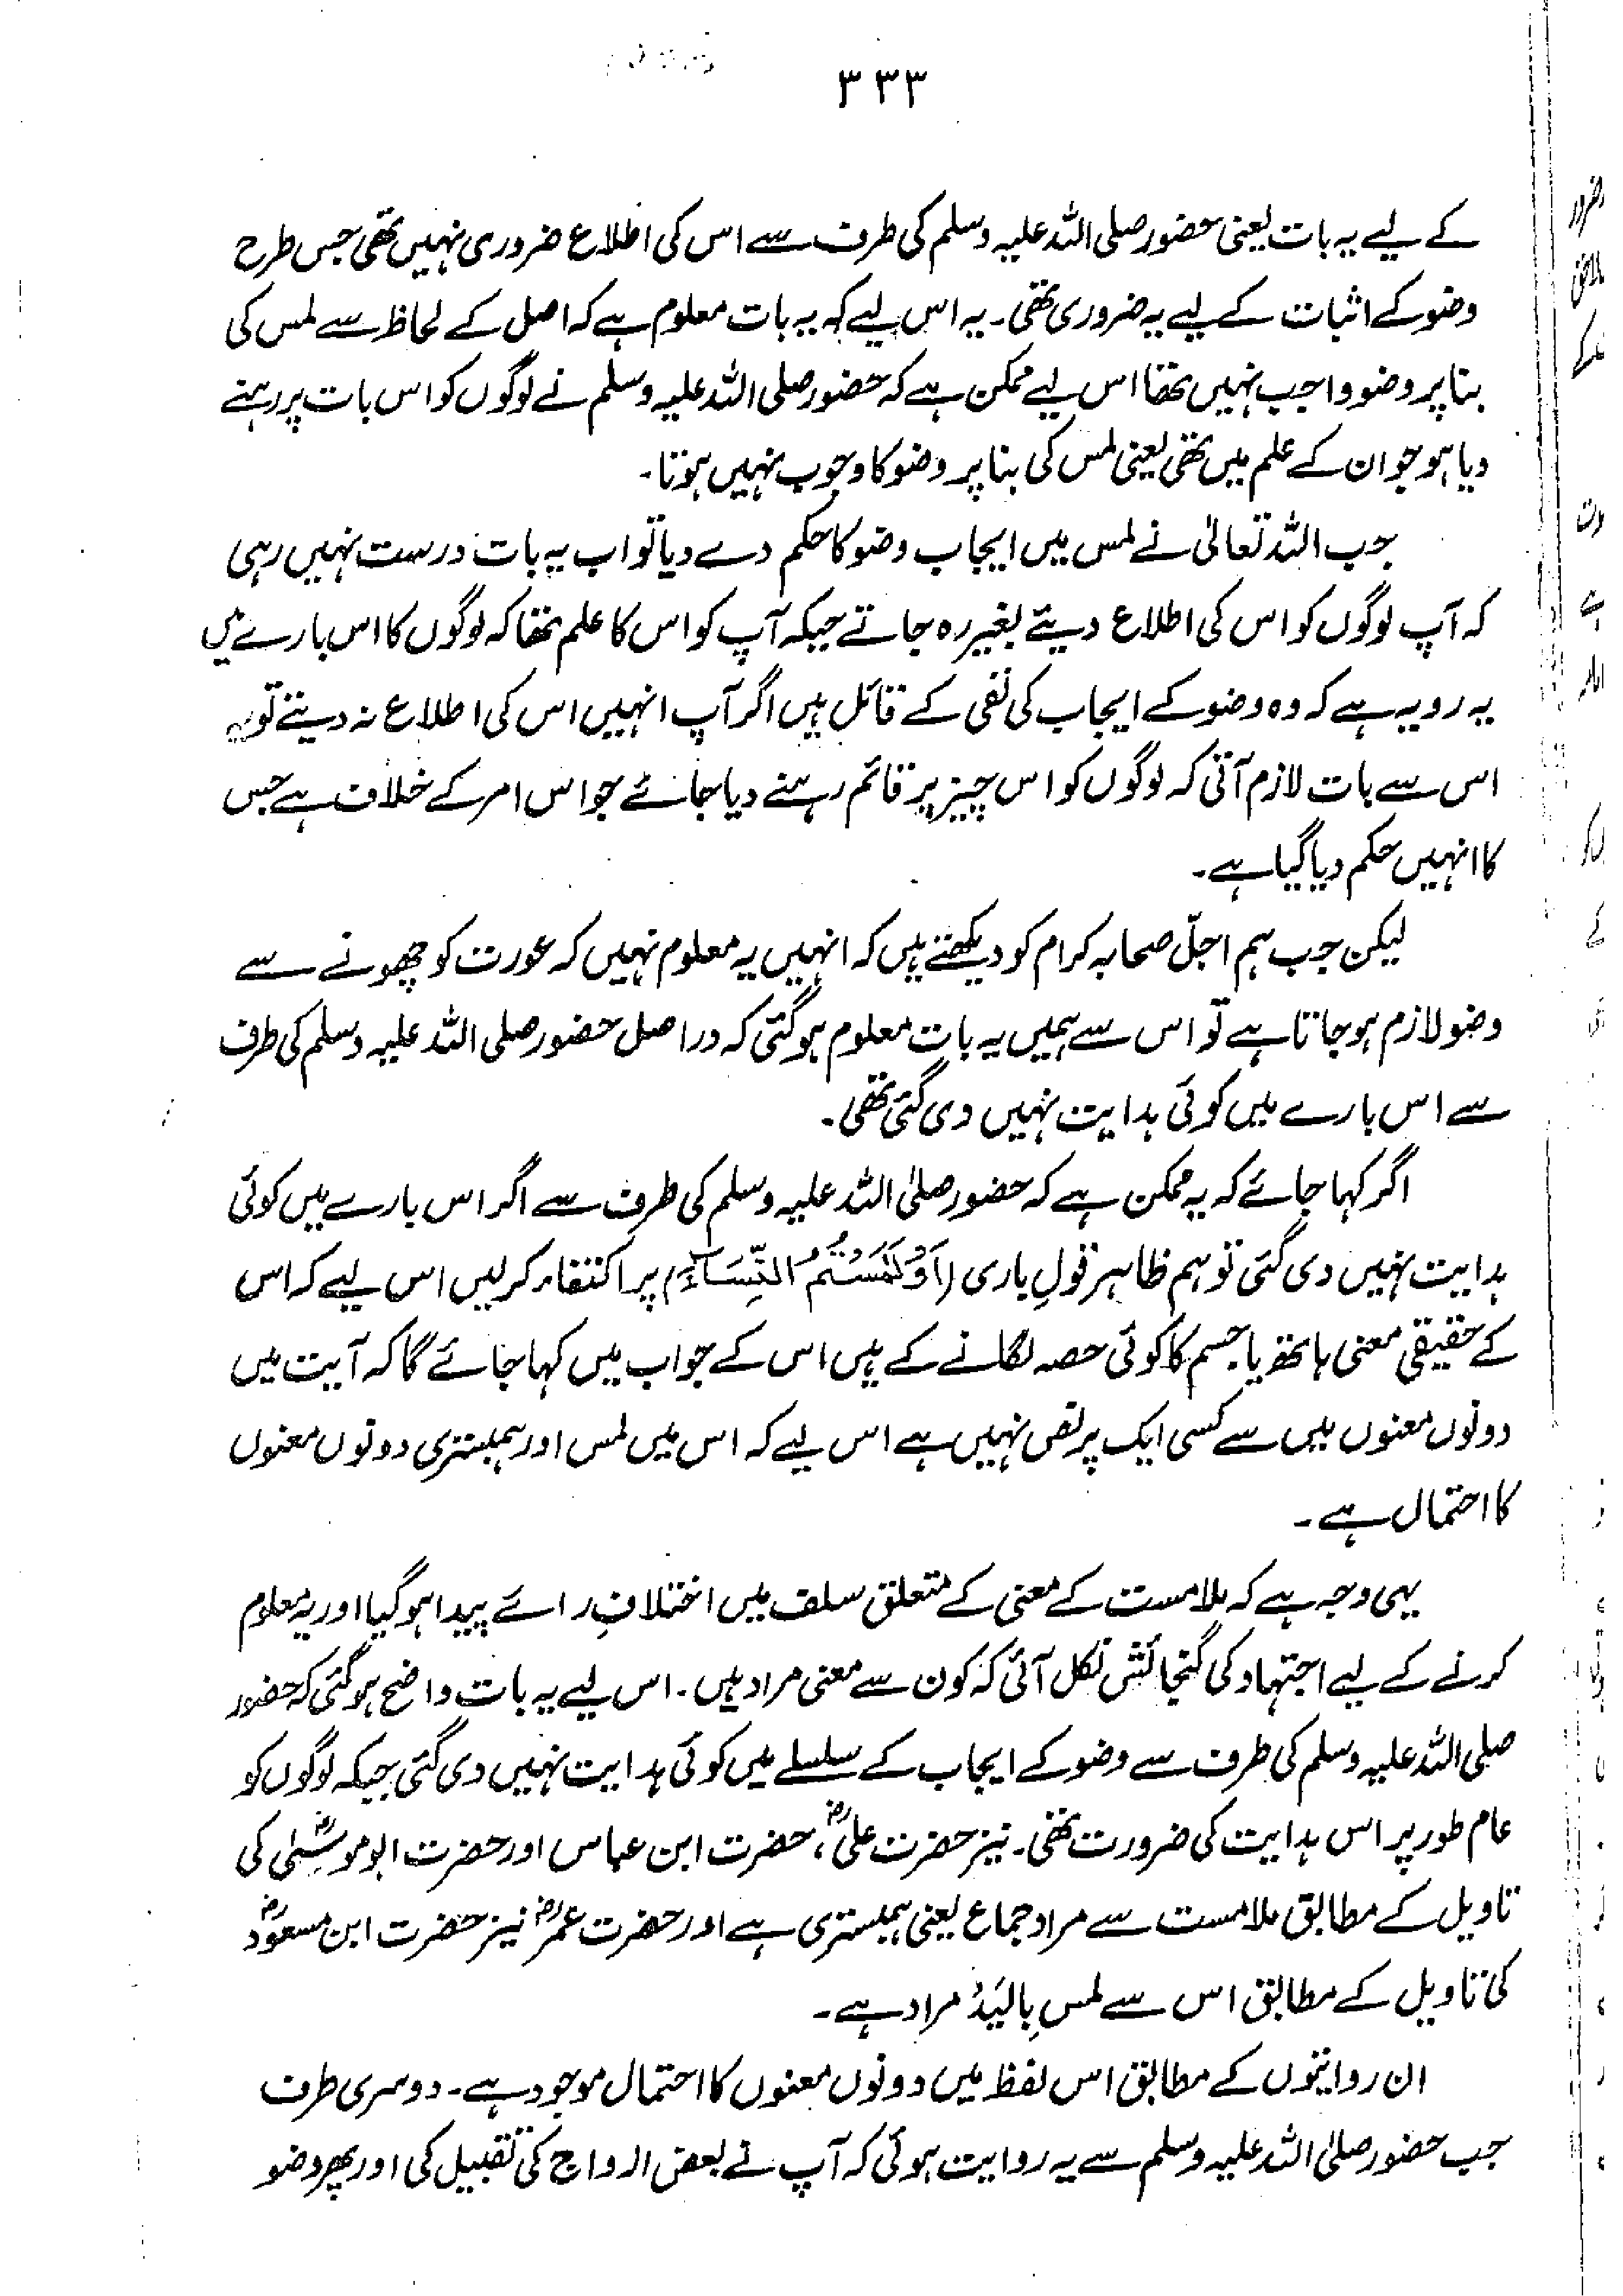 ۳۳۳
کے لیے یہ بات یعنی حضور صلی اللہ علیہ وسلم کی طرف سے اس کی اطلاع ضروری نہیں تھی جس طرح
وضو کے اثبات کے لیے یہ ضروری تھی۔ یہ اس لیے کہ یہ بات معلوم ہے کہ اصل کے لحاظ سے لمس کی
بنا پر وضو واجب نہیں تھا اس لیے ممکن ہے کہ حضور صلی اللہ علیہ وسلم نے لوگوں کو اس بات پر رہنے
دیا ہو جو ان کے علم میں تھی یعنی لمس کی بنا پر وضو کا وجوب نہیں ہوتا۔
جب اللہ تعالیٰ نے لمس میں ایجاب وضو کا حکم دے دیا تو اب یہ بات درست نہیں رہی
کہ آپ لوگوں کو اس کی اطلاع دیئے بغیر رہ جاتے جبکہ آپ کو اس کا علم تھا کہ لوگوں کا اس بارے میں
یہ رویہ ہے کہ وہ وضو کے ایجاب کی نفی کے قائل ہیں اگر آپ انہیں اس کی اطلاع نہ دیتے تو
اس سے بات لازم آتی کہ لوگوں کو اس چیز پر قائم رہنے دیا جائے جو اس امر کے خلاف ہے جس
کا انہیں حکم دیا گیا ہے۔
لیکن جب ہم اجلّ صحابہ کرام کو دیکھتے ہیں کہ انہیں یہ معلوم نہیں کہ عورت کو چھونے سے
وضو لازم ہو جاتا ہے تو اس سے ہمیں یہ بات معلوم ہو گئی کہ دراصل حضور صلی اللہ علیہ وسلم کی طرف
سے اس بارے میں کوئی ہدایت نہیں دی گئی تھی۔
اگر کہا جائے کہ یہ ممکن ہے کہ حضور صلی اللہ علیہ وسلم کی طرف سے اگر اس بارے میں کوئی
ہدایت نہیں دی گئی تو ہم ظاہر قولِ باری (اَوْ لٰمَسْتُمُ النِّسَآءَ) پر اکتفاء کر لیں اس لیے کہ اس
کے حقیقی معنی ہاتھ یا جسم کا کوئی حصہ لگانے کے ہیں اس کے جواب میں کہا جائے گا کہ آیت میں
دونوں معنوں میں سے کسی ایک پر نص نہیں ہے اس لیے کہ اس میں لمس اور ہمبستری دونوں معنوں
کا احتمال ہے۔
یہی وجہ ہے کہ ملامست کے معنی کے متعلق سلف میں اختلافِ رائے پیدا ہو گیا اور یہ معلوم
کرنے کے لیے اجتہاد کی گنجائش نکل آئی کہ کون سے معنی مراد ہیں۔ اس لیے یہ بات واضح ہو گئی کہ حضور
صلی اللہ علیہ وسلم کی طرف سے وضو کے ایجاب کے سلسلے میں کوئی ہدایت نہیں دی گئی جبکہ لوگوں کو
عام طور پر اس ہدایت کی ضرورت تھی۔ نیز حضرت علیؓ، حضرت ابن عباس اور حضرت ابوموسیٰؓ کی
تاویل کے مطابق ملامست سے مراد جماع یعنی ہمبستری ہے اور حضرت عمرؓ نیز حضرت ابن مسعودؓ
کی تاویل کے مطابق اس سے لمس بِالیَدْ مراد ہے۔
ان روایتوں کے مطابق اس لفظ میں دونوں معنوں کا احتمال موجود ہے۔ دوسری طرف
جب حضور صلی اللہ علیہ وسلم سے یہ روایت ہوئی کہ آپ نے بعض ازواج کی تقبیل کی اور پھر وضو